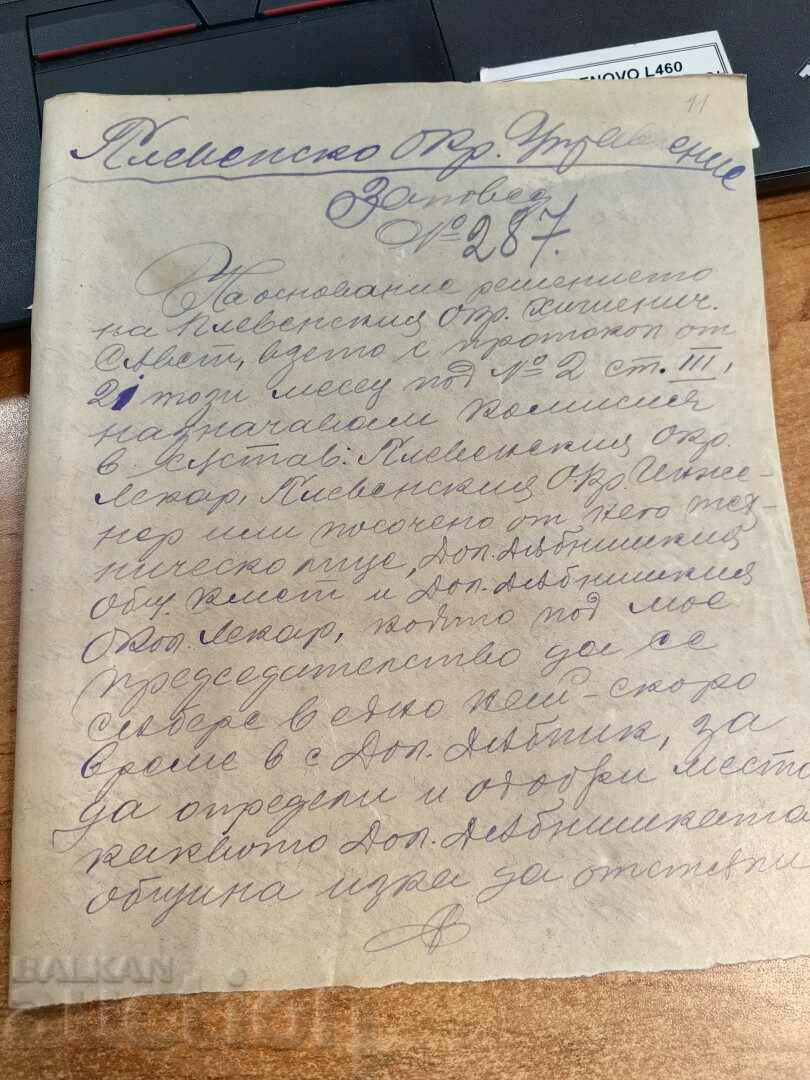 ENOVO L460
11
Плевенско Окр. Управление
Заповед
№ 287.
На основание решението
на Плевенския Окр. Хигиенич.
Съвет, взето с протокол от
21 този месец под № 2 ст. III,
назначавам комисия
в състав: Плевенския Окр.
Лекар, Плевенския Окр. Инже-
нер или посочено от него тех-
ническо лице, Дол. Дѫбнишкия
Общ. Кмет и Дол. Дѫбнишкия
Окол. Лекар, която под мое
председателство да се
събере в едно най-скоро
време в с. Дол. Дѫбник, за
да определи и одобри место
каквото Дол. Дѫбнишката
община иска да отстъпи
BALKAN
auction